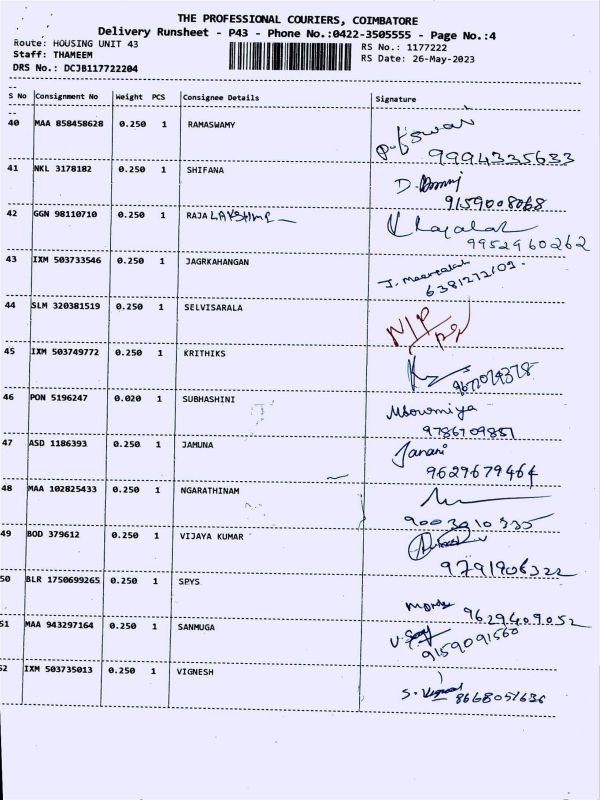 THE PROFESSIONAL COURIERS, COIMBATORE
Delivery Runsheet - P43 - Phone No.:0422-3505555 - Page No.:4
Route: HOUSING UNIT 43 RS No.: 1177222
Staff: THAMEEM RS Date: 26-May-2023
DRS No.: DCJB117722204
S No Consignment No Weight PCS Consignee Details Signature
40 MAA 858458628 0.250 1 RAMASWAMY
9994335633
41 NKL 3178182 0.250 1 SHIFANA
9159008068
42 GGN 98110710 0.250 1 RAJA LAKSHMI
9952960262
43 IXM 503733546 0.250 1 JAGRKAHANGAN
6381272109.
44 SLM 320381519 0.250 1 SELVISARALA
N/P
45 IXM 503749772 0.250 1 KRITHIKS
46 PON 5196247 0.020 1 SUBHASHINI
Msowmiya
9786709887
47 ASD 1186393 0.250 1 JAMUNA
Janani
9629679464
48 MAA 102825433 0.250 1 NGARATHINAM
49 BOD 379612 0.250 1 VIJAYA KUMAR
9791906322
50 BLR 1750699265 0.250 1 SPYS
9629409052
51 MAA 943297164 0.250 1 SANMUGA
9159091560
52 IXM 503735013 0.250 1 VIGNESH
8668051636